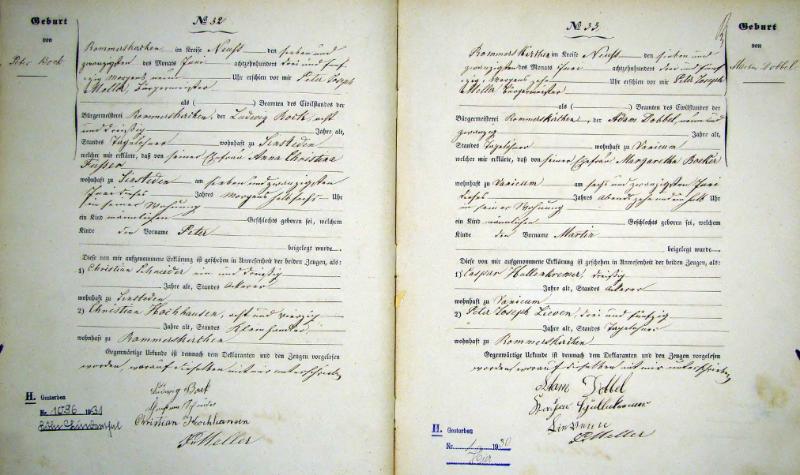 Geburt
von
Peter Bock
№ 32
Rommerskirchen im Kreise Neuß den sieben und
zwanzigsten des Monats Juni achtzehnhundert drei und fünf
zig, Morgens neun Uhr erschien vor mir Peter Joseph
Moller, Bürgermeister
als ( ) Beamten des Civilstandes der
Bürgermeisterei Rommerskirchen, der Ludwig Bock, acht
und dreißig Jahre alt,
Standes Tagelöhner wohnhaft zu Sinsteden
welcher mir erklärte, daß von seiner Ehefrau Anna Christina
wohnhaft zu Sinsteden am sieben und zwanzigsten
Juni dieses Jahres Morgens halb sechs Uhr
in seiner Wohnung
ein Kind männlichen Geschlechts geboren sei, welchem
Kinde den Vorname Peter
beigelegt wurde
Diese von mir aufgenommene Erklärung ist geschehen in Anwesenheit der beiden Zeugen, als:
1) Christian Schneider ein und dreißig
Jahre alt, Standes Ackerer
wohnhaft zu Sinsteden
2) Christian Kochhausen, acht und vierzig
Jahre alt, Standes
wohnhaft zu Rommerskirchen
Gegenwärtige Urkunde ist demnach den Deklaranten und den Zeugen vorgelesen
worden, worauf dieselben mit mir unterschrieben
Ludwig Bock
Christian Kochhausen
PJ Moller
H. Gestorben
Nr. 1036 1931
Geburt
von
Martin Dobbel
№ 33
Rommerskirchen im Kreise Neuß den sieben und
zwanzigsten des Monats Juni achtzehnhundert drei und fünf
zig, Morgens zehn Uhr erschien vor mir Peter Joseph
Moller, Bürgermeister
als ( ) Beamten des Civilstandes der
Bürgermeisterei Rommerskirchen, der Adam Dobbel, neun und
zwanzig Jahre alt,
Standes Tagelöhner wohnhaft zu Vanicum
welcher mir erklärte, daß von seiner Ehefrau Margaretha Becker
wohnhaft zu Vanicum am sechs und zwanzigsten Juni
dieses Jahres Abends zehn und ein halb Uhr
in seiner Wohnung
ein Kind männlichen Geschlechts geboren sei, welchem
Kinde den Vorname Martin
beigelegt wurde
Diese von mir aufgenommene Erklärung ist geschehen in Anwesenheit der beiden Zeugen, als:
1) Caspar Hellenkremer, dreißig
Jahre alt, Standes Ackerer
wohnhaft zu Vanicum
2) Peter Joseph Lieven, drei und fünfzig
Jahre alt, Standes Tagelöhner
wohnhaft zu Rommerskirchen
Gegenwärtige Urkunde ist demnach den Deklaranten und den Zeugen vorgelesen
worden, worauf dieselben mit mir unterschrieben
Adam Dobbel
PJ Moller
H. Gestorben
Nr. 1930